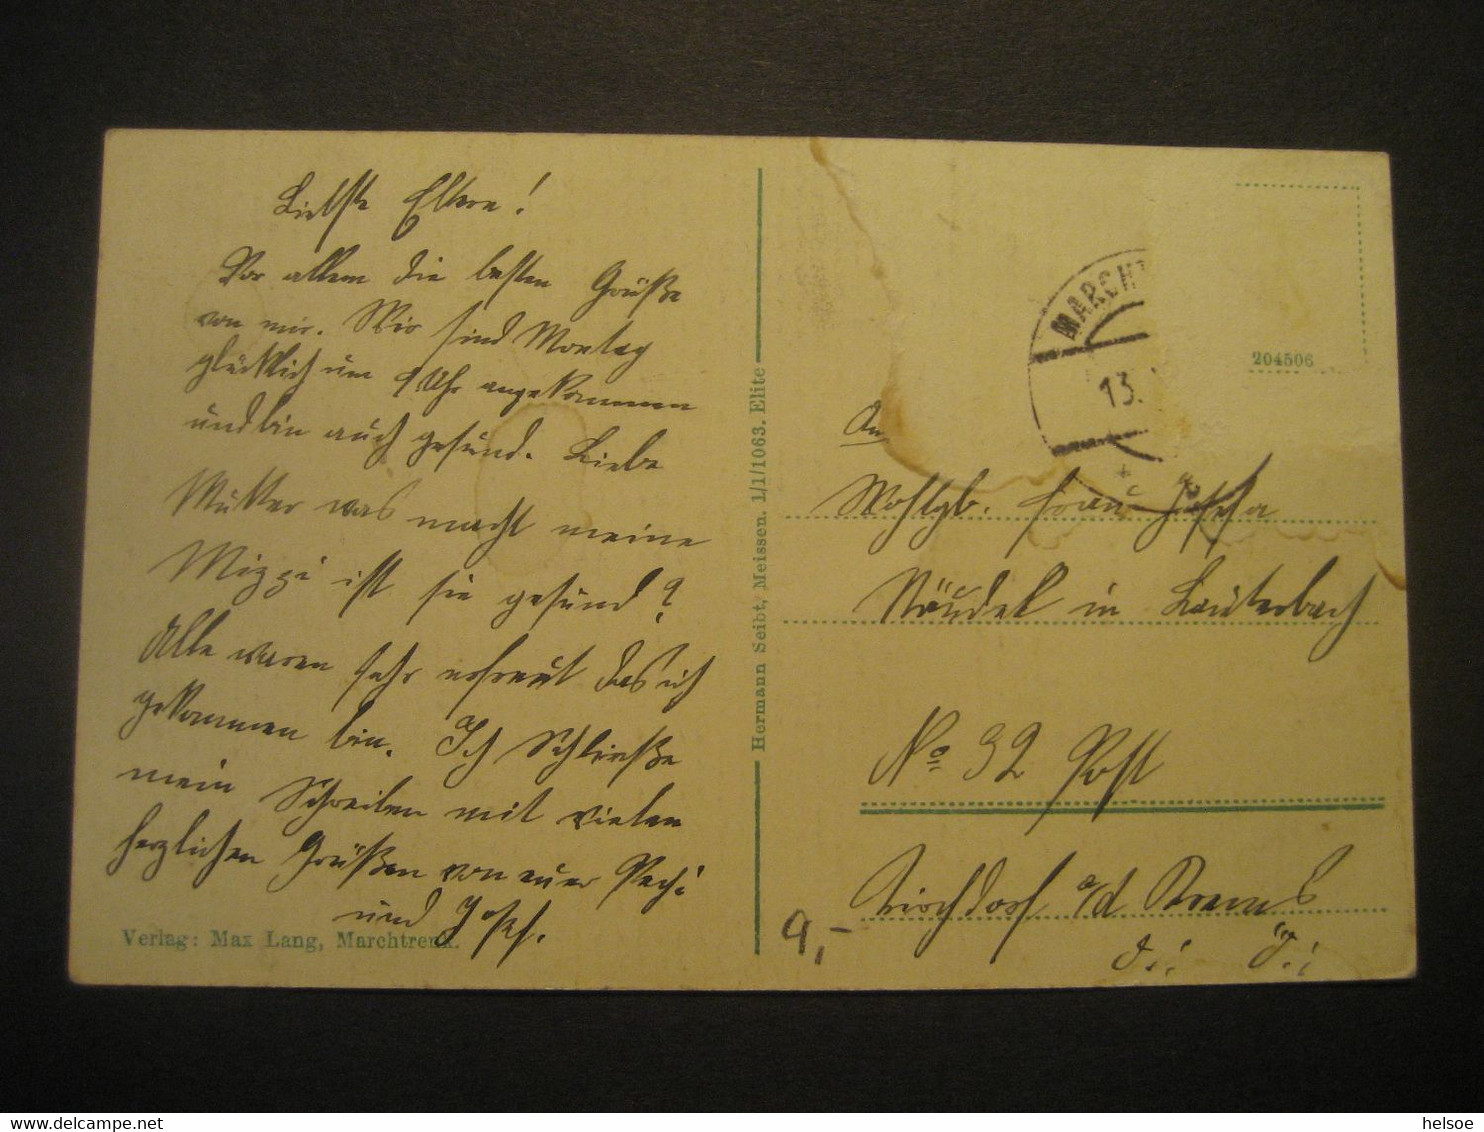 Liebste Eltern!
Vor allem die besten Grüße
von mir. Wir sind Montag
glücklich um 9 Uhr angekommen
und bin auch gesund. Liebe
Mutter was macht meine
Mizzi ist sie gesund?
Alle waren sehr erfreut das ich
gekommen bin. Ich Schließe
mein Schreiben mit vielen
herzlichen Grüßen von euer Pepi
und Josef.
Verlag: Max Lang, Marchtrenk.
Hermann Seibt, Meissen. 1/1/1063. Elite
204506
MARCHT
13.
An
Wohlgb. Frau Josefa
in Lauterbach
No 32 Post
Kirchdorf a/d Krems
9,-
helsoe
delcampe.net